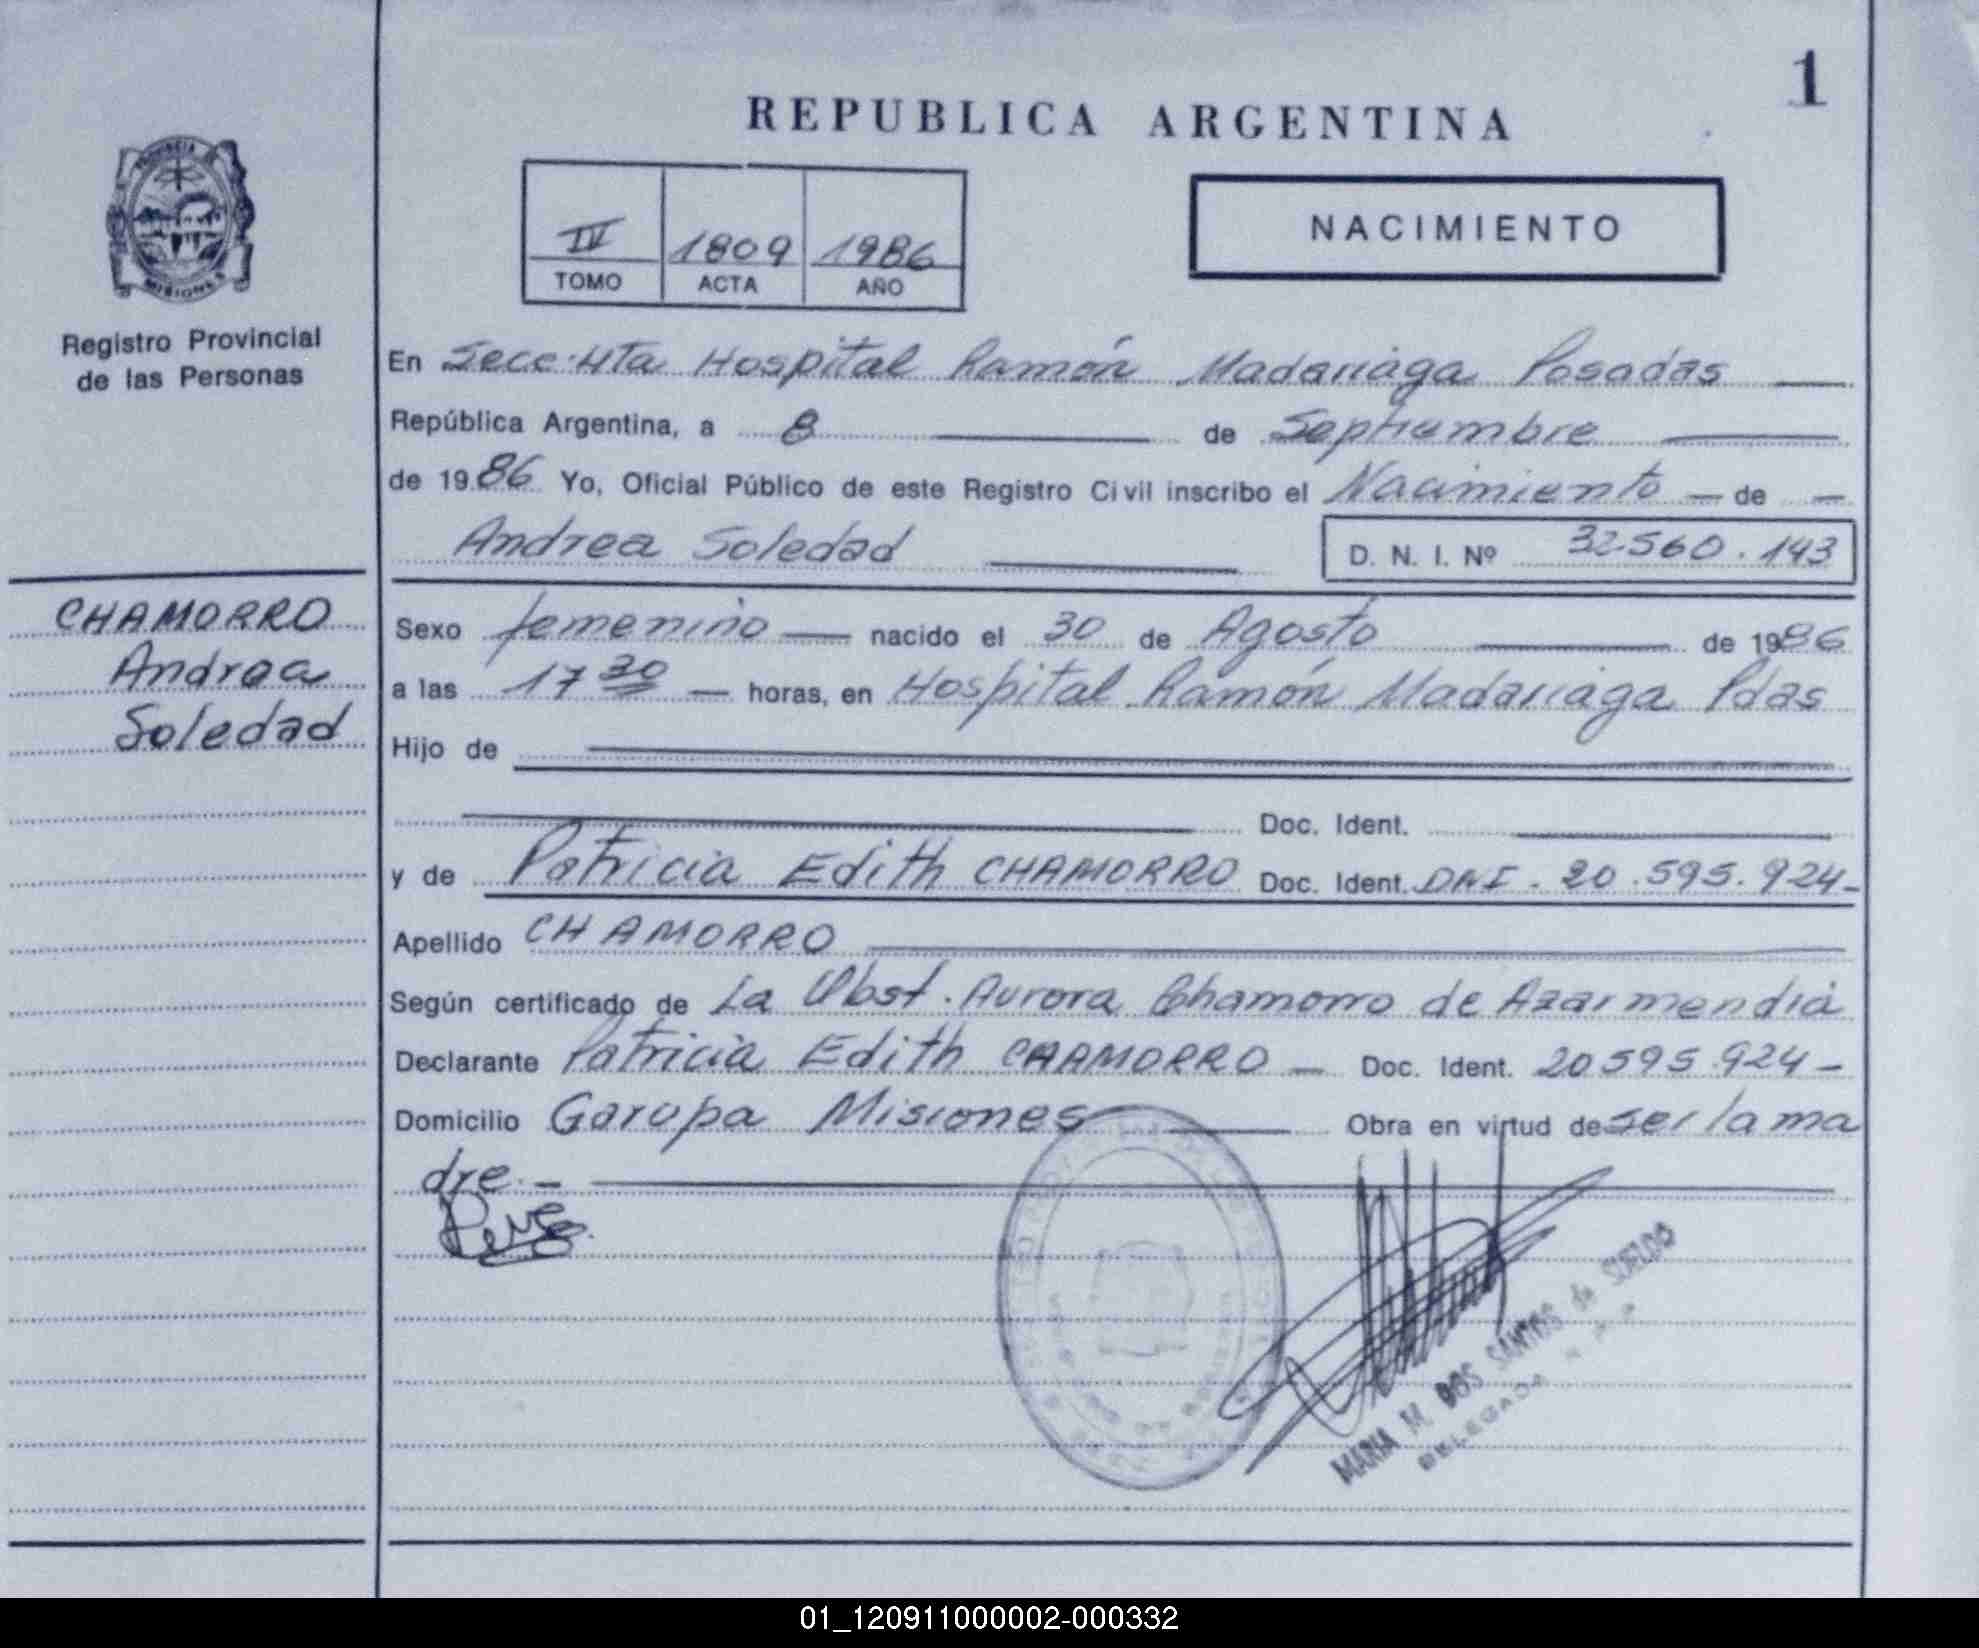 1
REPUBLICA ARGENTINA
PROVINCIA DE
MISIONES
Registro Provincial
de las Personas
IV 1809 1986
TOMO ACTA AÑO
NACIMIENTO
En Secc. 4ta Hospital Ramón Madariaga Posadas
República Argentina, a 8 de Septiembre
de 1986 Yo, Oficial Público de este Registro Civil inscribo el Nacimiento — de —
Andrea Soledad D. N. I. Nº 32.560.143
CHAMORRO
Andrea
Soledad
Sexo femenino — nacido el 30 de Agosto de 1986
a las 17 30 — horas, en Hospital Ramón Madariaga Pdas
Hijo de
Doc. Ident.
y de Patricia Edith CHAMORRO Doc. Ident. DNI. 20.595.924-
Apellido CHAMORRO
Según certificado de La Obst. Aurora Chamorro de Azarmendia
Declarante Patricia Edith CHAMORRO — Doc. Ident. 20595.924-
Domicilio Garupa Misiones Obra en virtud de ser la ma
dre.-
MARIA M. DOS SANTOS de SUELDO
DELEGADA
01_120911000002-000332